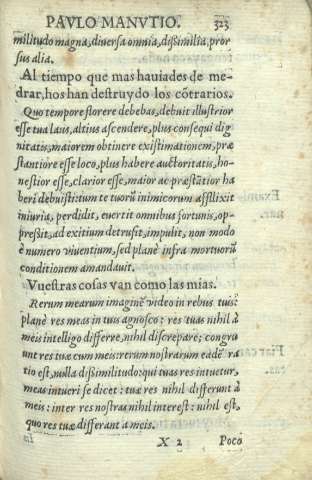 PAVLO MANVTIO. 323
militudo magna, diuersa omnia, dißimilia, pror
sus alia.
Al tiempo que mas hauiades de me-
drar, hos han destruydo los cōtrarios.
Quo tempore florere debebas, debuit illustrior
esse tua laus, altius ascendere, plus consequi dig
nitatis, maiorem obtinere existimationem, præ
stantiore esse loco, plus habere auctoritatis, ho-
nestior esse, clarior esse, maior ac præstātior ha
beri debuisti: tum te tuorū inimicorum afflixit
iniuria, perdidit, euertit omnibus fortunis, op-
preßit, ad exitium detrusit, impulit, non modo
è numero viuentium, sed planè infra mortuorū
conditionem amandauit.
Vuestras cosas van como las mias.
Rerum mearum imaginē video in rebus tuis:
planè res meas in tuis agnosco: res tuas nihil à
meis intelligo differre, nihil discrepare; congru
unt res tuæ cum meis: rerum nostrarum eadē ra
tio est, nulla dißimilitudo: qui tuas res intuetur,
meas intueri se dicet: tuæ res nihil differunt à
meis: inter res nostras nihil interest: nihil est,
quo res tuæ differant a meis.
X 2 Poco